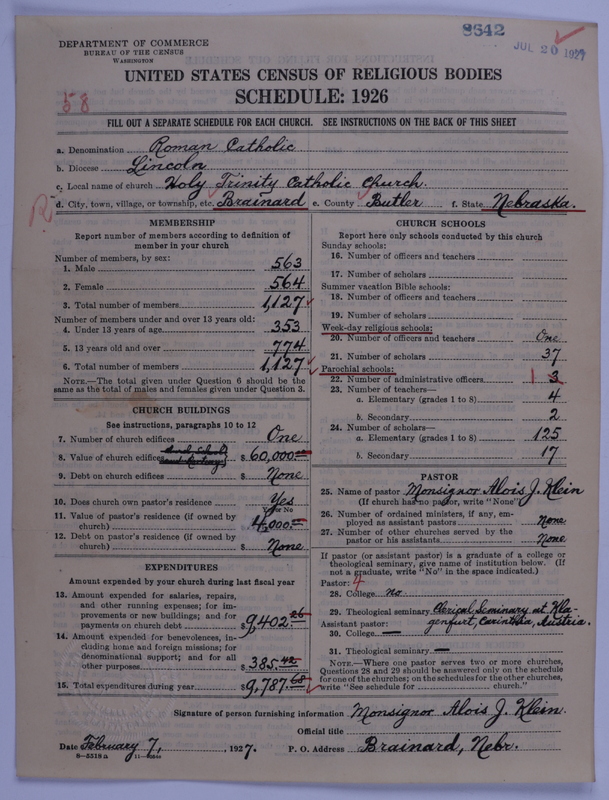 8642
JUL 20 1927
DEPARTMENT OF COMMERCE
BUREAU OF THE CENSUS
WASHINGTON
UNITED STATES CENSUS OF RELIGIOUS BODIES
SCHEDULE: 1926
58
FILL OUT A SEPARATE SCHEDULE FOR EACH CHURCH. SEE INSTRUCTIONS ON THE BACK OF THIS SHEET
a. Denomination Roman Catholic
b. Diocese Lincoln
c. Local name of church Holy Trinity Catholic Church.
d. City, town, village, or township, etc. Brainard e. County Butler f. State Nebraska.
R
MEMBERSHIP
Report number of members according to definition of
member in your church
Number of members, by sex:
1. Male 563
2. Female 564
3. Total number of members 1,127
Number of members under and over 13 years old:
4. Under 13 years of age 353
5. 13 years old and over 774
6. Total number of members 1,127
NOTE.—The total given under Question 6 should be the
same as the total of males and females given under Question 3.
CHURCH BUILDINGS
See instructions, paragraphs 10 to 12
7. Number of church edifices One
and school
8. Value of church edifices $ 60,000.00
9. Debt on church edifices $ None
10. Does church own pastor's residence Yes
Yes or No
11. Value of pastor's residence (if owned by
church) $ 4,000.00
12. Debt on pastor's residence (if owned by
church) $ None
EXPENDITURES
Amount expended by your church during last fiscal year
13. Amount expended for salaries, repairs,
and other running expenses; for im-
provements or new buildings; and for
payments on church debt $ 9,402.26
14. Amount expended for benevolences, in-
cluding home and foreign missions; for
denominational support; and for all
other purposes $ 385.42
15. Total expenditures during year $ 9,787.68
CHURCH SCHOOLS
Report here only schools conducted by this church
Sunday schools:
16. Number of officers and teachers
17. Number of scholars
Summer vacation Bible schools:
18. Number of officers and teachers
19. Number of scholars
Week-day religious schools:
20. Number of officers and teachers One
21. Number of scholars 37
Parochial schools:
22. Number of administrative officers 1 3
23. Number of teachers—
a. Elementary (grades 1 to 8) 4
b. Secondary 2
24. Number of scholars—
a. Elementary (grades 1 to 8) 125
b. Secondary 17
PASTOR
25. Name of pastor Monsignor Alois J. Klein
(If church has no pastor, write "None")
26. Number of ordained ministers, if any, em-
ployed as assistant pastors None
27. Number of other churches served by the
pastor or his assistants None
If pastor (or assistant pastor) is a graduate of a college or
theological seminary, give name of institution below. (If
not a graduate, write "No" in the space indicated.)
Pastor: 4
28. College no
29. Theological seminary Clerical Seminary at Kla-
Assistant pastor: genfurt, Carinthia, Austria.
30. College —
31. Theological seminary —
NOTE.—Where one pastor serves two or more churches,
Questions 28 and 29 should be answered only on the schedule
for one of the churches; on the schedules for the other churches,
write "See schedule for church."
Signature of person furnishing information Monsignor Alois J. Klein.
Official title
Date February 7, , 1927. P. O. Address Brainard, Nebr.
8—5518a